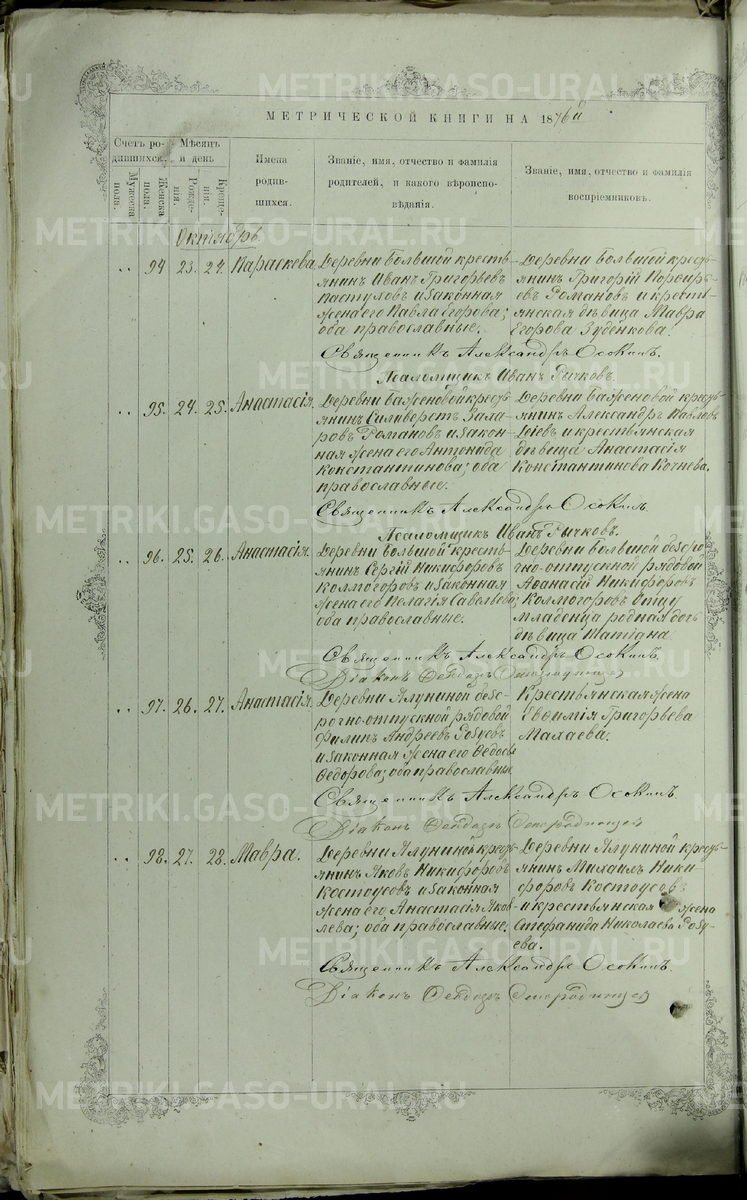 МЕТРИЧЕСКОЙ КНИГИ НА 1876й
Счетъ ро-
дившихся.
Мужеска
пола.
Женска
пола.
Мѣсяцъ
и день
Рожде-
нія.
Креще-
нія.
Имена
родив-
шихся.
Званіе, имя, отчество и фамилія
родителей, и какого вѣроиспо-
вѣданія.
Званіе, имя, отчество и фамилія
воспріемниковъ.
Октябрь.
94 23. 24. Параскева.
Деревни Большой кресть-
янинъ Иванъ Григорьевъ
Пастуховъ и законная
жена его Павла Егорова;
оба православные.
Деревни Большой кресть-
янинъ Григорій Порфирь-
евъ Романовъ и кресть-
янская дѣвица Мавра
Егорова Зуденкова.
Священникъ Александръ Осокинъ.
Псаломщикъ Иванъ Рычковъ.
95. 24. 25. Анастасія.
Деревни Баженовой кресть-
янинъ Силиверстъ Заха-
ровъ Романовъ и закон-
ная жена его Антонида
Константинова; оба
православные.
Деревни Баженовой кресть-
янинъ Александръ Павловъ
и крестьянская
дѣвица Анастасія
Константинова Кочнева.
Священникъ Александръ Осокинъ.
Псаломщикъ Иванъ Рычковъ.
96. 25. 26. Анастасія.
Деревни Большой кресть-
янинъ Сергій Никифоровъ
Колмогоровъ и законная
жена его Пелагія Савельева;
оба православные.
Деревни Большой безсро-
чно-отпускной рядовой
Аѳанасій Никифоровъ
Колмогоровъ Отцу
младенца родная дочь
дѣвица
Священникъ Александръ Осокинъ.
Діаконъ
97. 26. 27. Анастасія.
Деревни Ялуниной безс-
рочно-отпускной рядовой
Филипъ Андреевъ Робуевъ
и законная жена его Ѳедосья
Ѳедорова; оба православные
Крестьянская жена
Евфимія Григорьева
Махаева.
Священникъ Александръ Осокинъ.
Діаконъ
98. 27. 28. Мавра.
Деревни Ялуниной кресть-
янинъ Яковъ Никифоровъ
Костоусовъ и законная
жена его Анастасія Яков-
лева; оба православные.
Деревни Ялуниной кресть-
янинъ Михаилъ Ники-
форовъ Костоусовъ
и крестьянская жена
Стефанида Николаева Робу-
ева.
Священникъ Александръ Осокинъ.
Діаконъ
METRIKI.GASO-URAL.RU